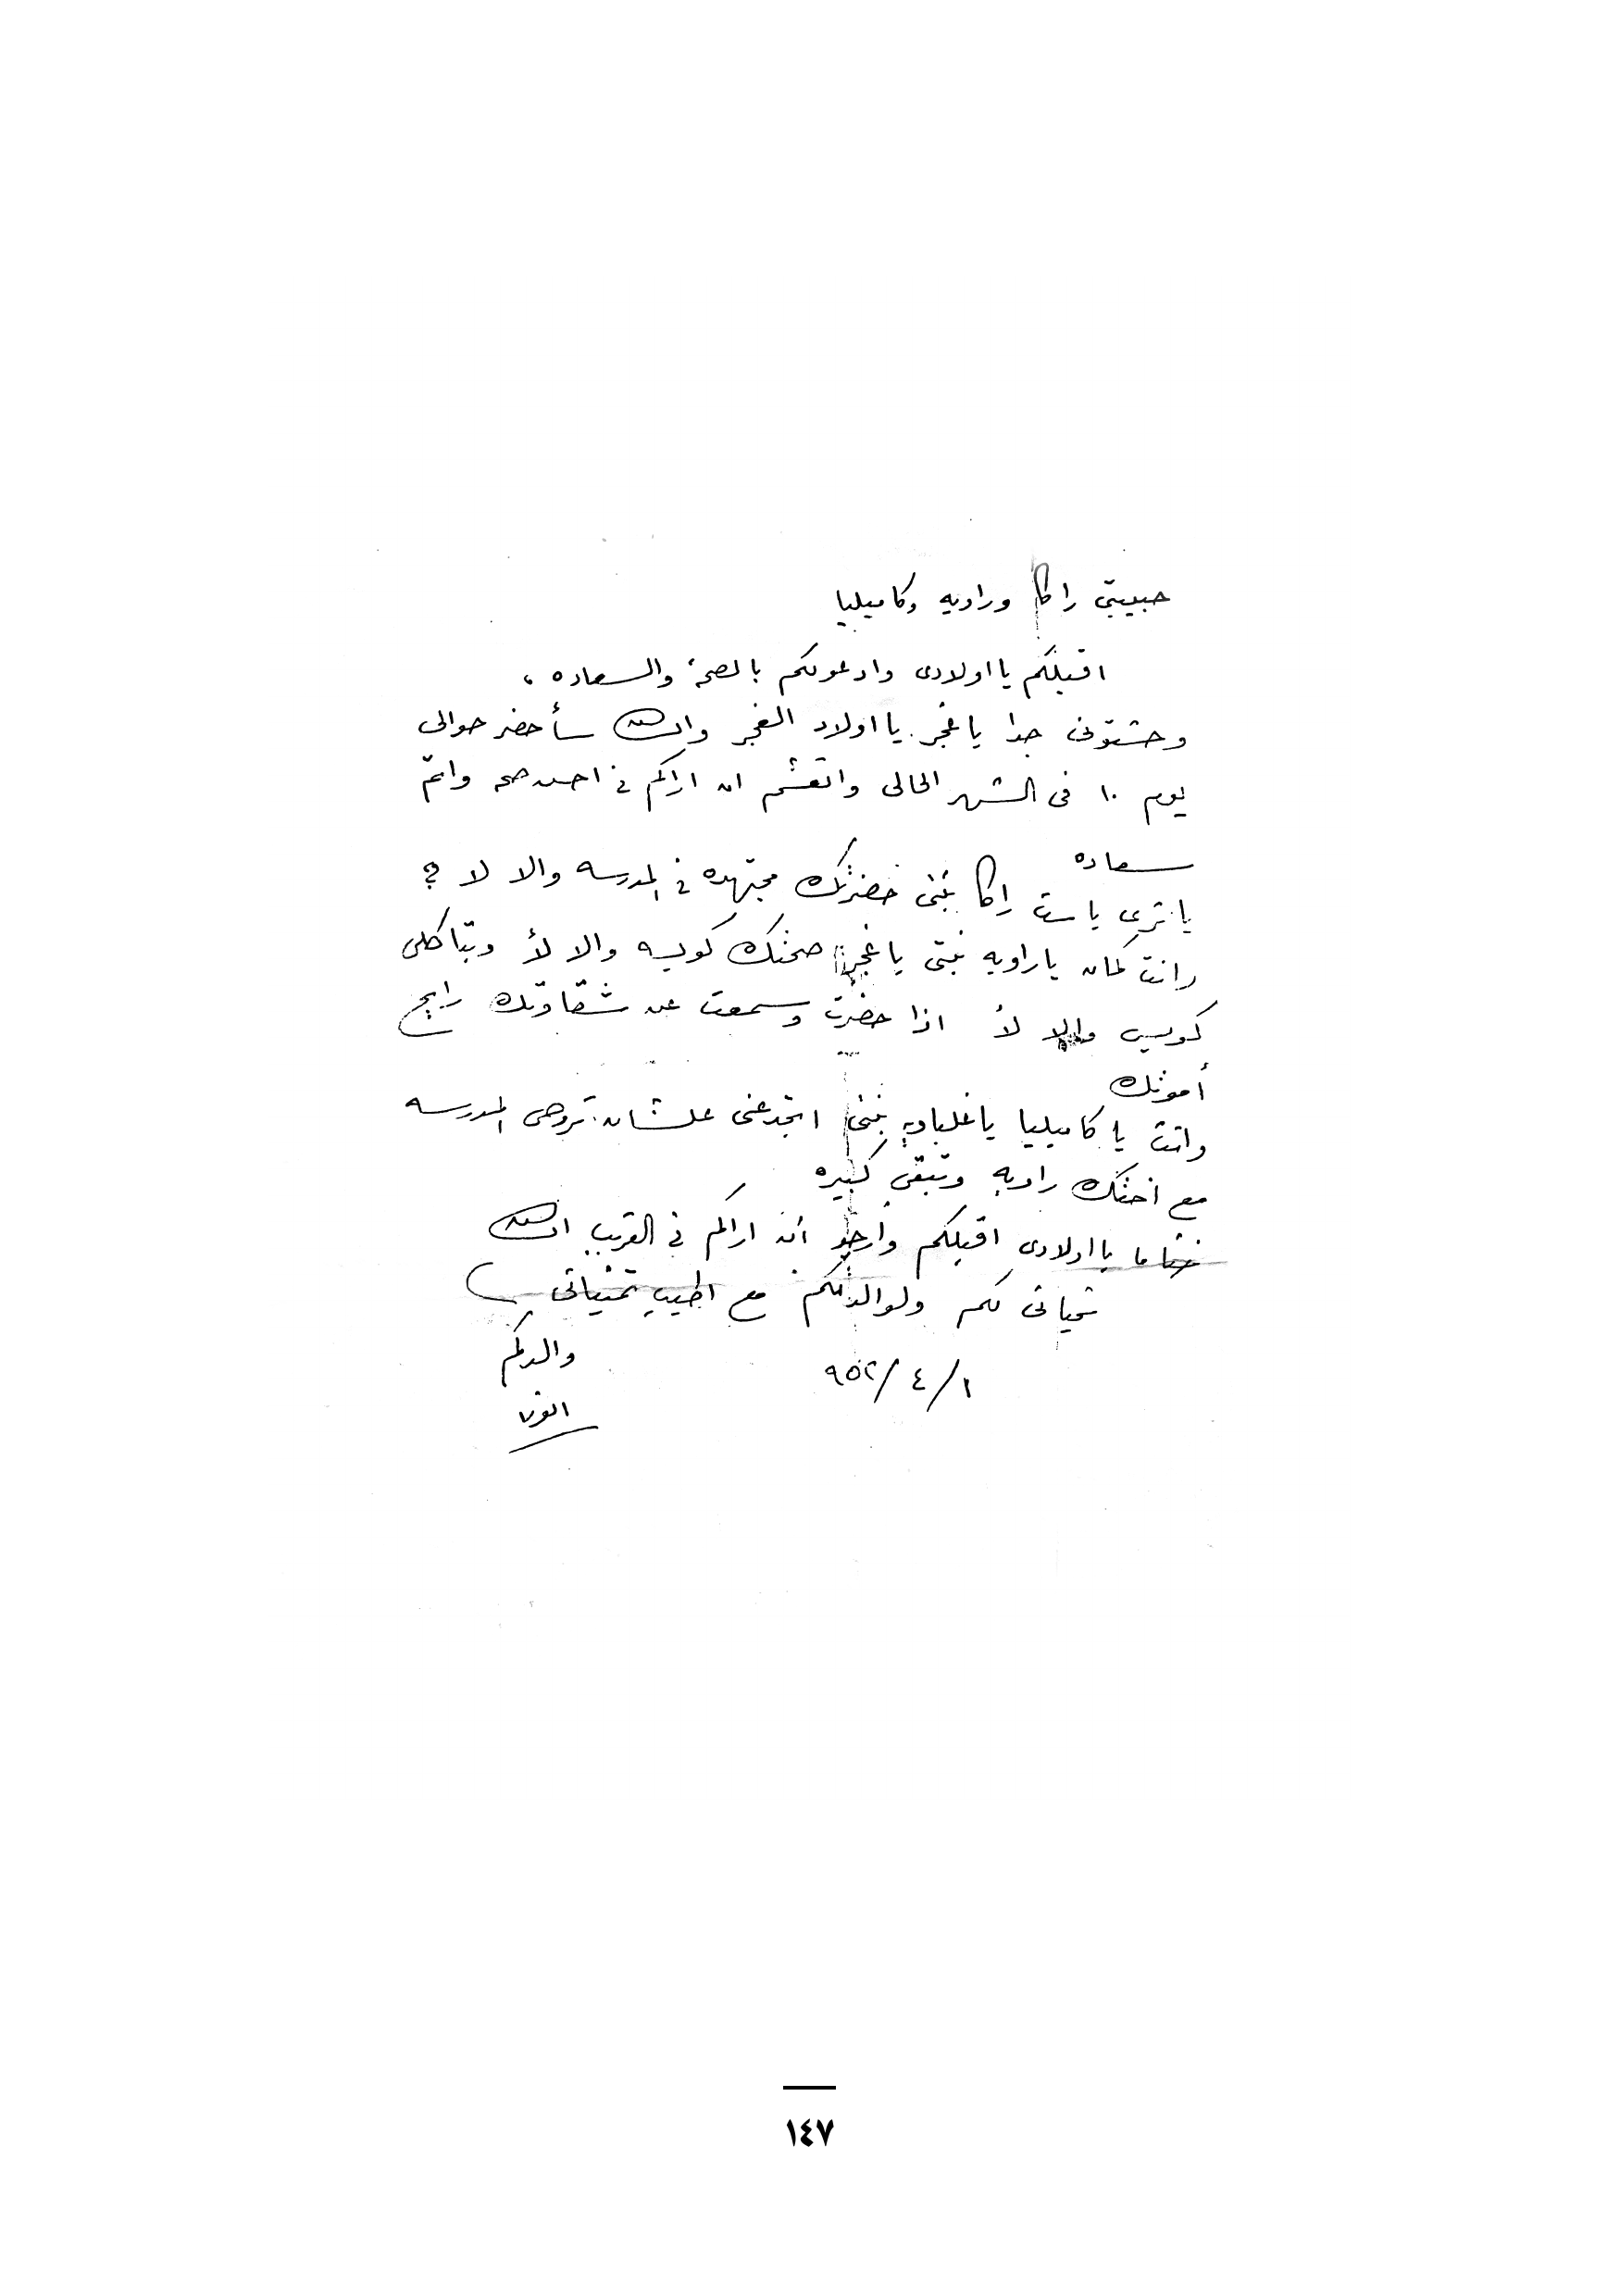 حبيبتى راكا وراويه وكاميليا
اقبلكم يا اولادى وادعولكم بالصحة والسعاده ،
وحشتونى جدا يا غجر يا اولاد الغجر والله سأحضر حوالى
يوم ١٠ فى الشهر الحالى واتعشم ان اراكم فى احسن صحه واتم
سعاده
يا ترى يا ست راكا بنتى حضرتك مجتهده فى المدرسه والا لا ؟
وانت كمان يا راويه بنتى يا غجر صحتك كويسه والا لأ وبتاكلى
كويس والا لأ اذا حضرت وسمعت عن شقاوتك رايح
أموتك
وانت يا كاميليا يا غلباويه بنتى اتجدعنى علشان تروحى المدرسه
مع اختك راويه وتبقى كبيره
ختاما يا اولادى اقبلكم وارجو أن اراكم فى القريب ان
تحياتى لكم ولوالدتكم مع اطيب تمنياتى
والدكم
١/٤/٩٥٢
١٤٧